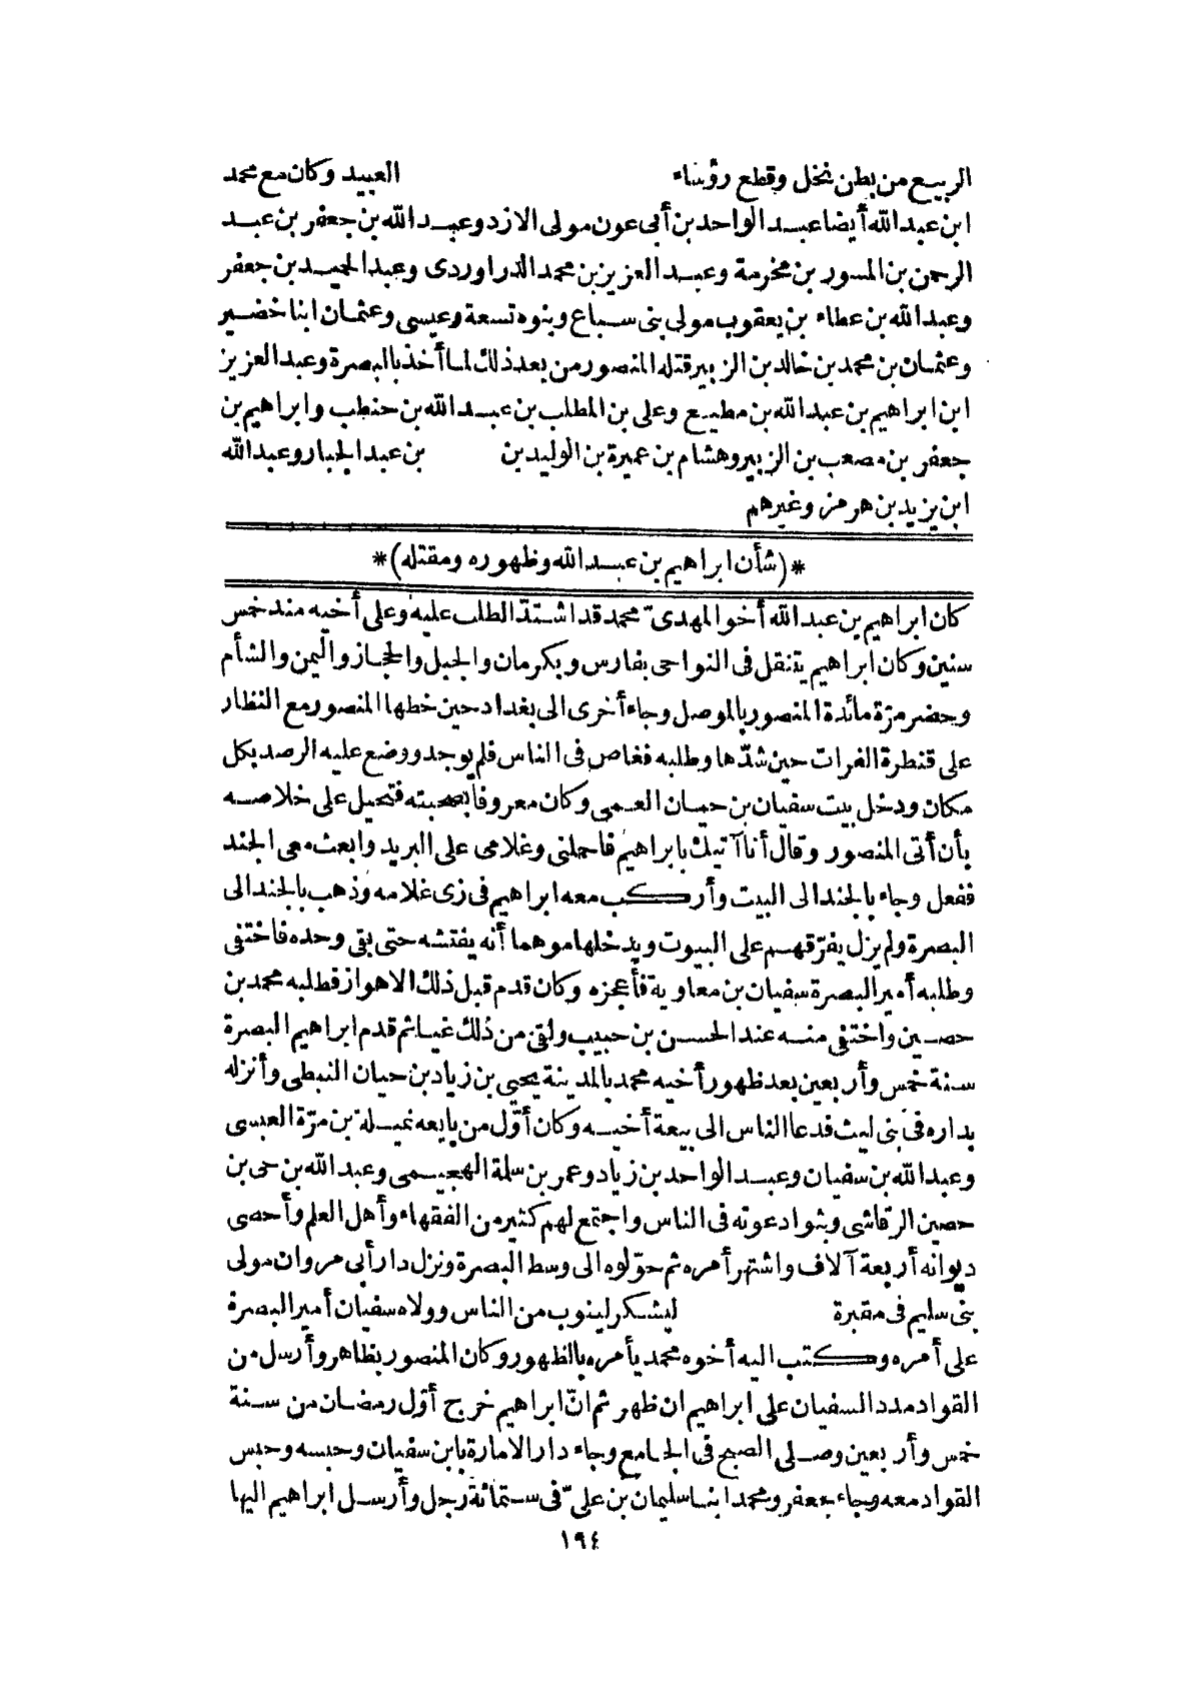 الربيع من بطن نخل وقطع رؤساء العبيد وكان مع محمد
ابن عبد الله أيضا عبد الواحد بن أبى عون مولى الازد وعبد الله بن جعفر بن عبد
الرحمن بن المسور بن مخرمة وعبد العزيز بن محمد الدراوردى وعبد الحميد بن جعفر
وعبد الله بن عطاء بن يعقوب مولى بنى سباع وبنوه تسعة وعيسى وعثمان ابنا خضير
وعثمان بن محمد بن خالد بن الزبير قتله المنصور من بعد ذلك لما أخذ بالبصرة وعبد العزيز
ابن ابراهيم بن عبد الله بن مطيع وعلى بن المطلب بن عبد الله بن حنطب وابراهيم بن
جعفر بن مصعب بن الزبير وهشام بن عميرة بن الوليد بن بن عبد الجبار وعبد الله
ابن يزيد بن هرمز وغيرهم
* (شأن ابراهيم بن عبد الله وظهوره ومقتله) *
كان ابراهيم بن عبد الله أخو المهدىّ محمد قد اشتدّ الطلب عليه وعلى أخيه منذ خمس
سنين وكان ابراهيم يتنقل فى النواحى بفارس وبكرمان والجبل والحجاز واليمن والشأم
وحضر مرّة مائدة المنصور بالموصل وجاء أخرى الى بغداد حين خطها المنصور مع النظار
على قنطرة الفرات حين شدّها وطلبه فغاص فى الناس فلم يوجد ووضع عليه الرصد بكل
مكان ودخل بيت سفيان بن حيان العمى وكان معروفا بصحبته فتحيل على خلاصه
بأن أتى المنصور وقال أنا آتيك بابراهيم فاحملنى وغلامى على البريد وابعث معى الجند
ففعل وجاء بالجند الى البيت وأركب معه ابراهيم فى زى غلامه وذهب بالجند الى
البصرة ولم يزل يفرّقهم على البيوت ويدخلها موهما أنه يفتشه حتى بقى وحده فاختفى
وطلبه أمير البصرة سفيان بن معاوية فأعجزه وكان قدم قبل ذلك الاهواز فطلبه محمد بن
حصين واختفى منه عند الحسن بن حبيب ولقى من ذلك غيا ثم قدم ابراهيم البصرة
سنة خمس وأربعين بعد ظهور أخيه محمد بالمدينة يحيى بن زياد بن حيان النبطى وأنزله
بداره فى بنى ليث فدعا الناس الى بيعة أخيه وكان أوّل من بايعه نميلة بن مرّة العبسى
وعبد الله بن سفيان وعبد الواحد بن زياد وعمر بن سلمة الهجيمى وعبد الله بن حى بن
حصين الرقاشى وبثوا دعوته فى الناس واجتمع لهم كثير من الفقهاء وأهل العلم وأحصى
ديوانه أربعة آلاف واشتهر أمره ثم حوّلوه الى وسط البصرة ونزل دار أبى مروان مولى
بنى سليم فى مقبرة ليشكر لينوب من الناس وولاه سفيان أمير البصرة
على أمره وكتب اليه أخوه محمد يأمره بالظهور وكان المنصور بظاهر وأرسل من
القواد مددا لسفيان على ابراهيم ان ظهر ثم انّ ابراهيم خرج أوّل رمضان من سنة
خمس وأربعين وصلى الصبح فى الجامع وجاء دار الامارة بابن سفيان وحبسه وحبس
القواد معه وجاء جعفر ومحمد ابنا سليمان بن علىّ فى ستمائة رجل وأرسل ابراهيم اليها
١٩٤